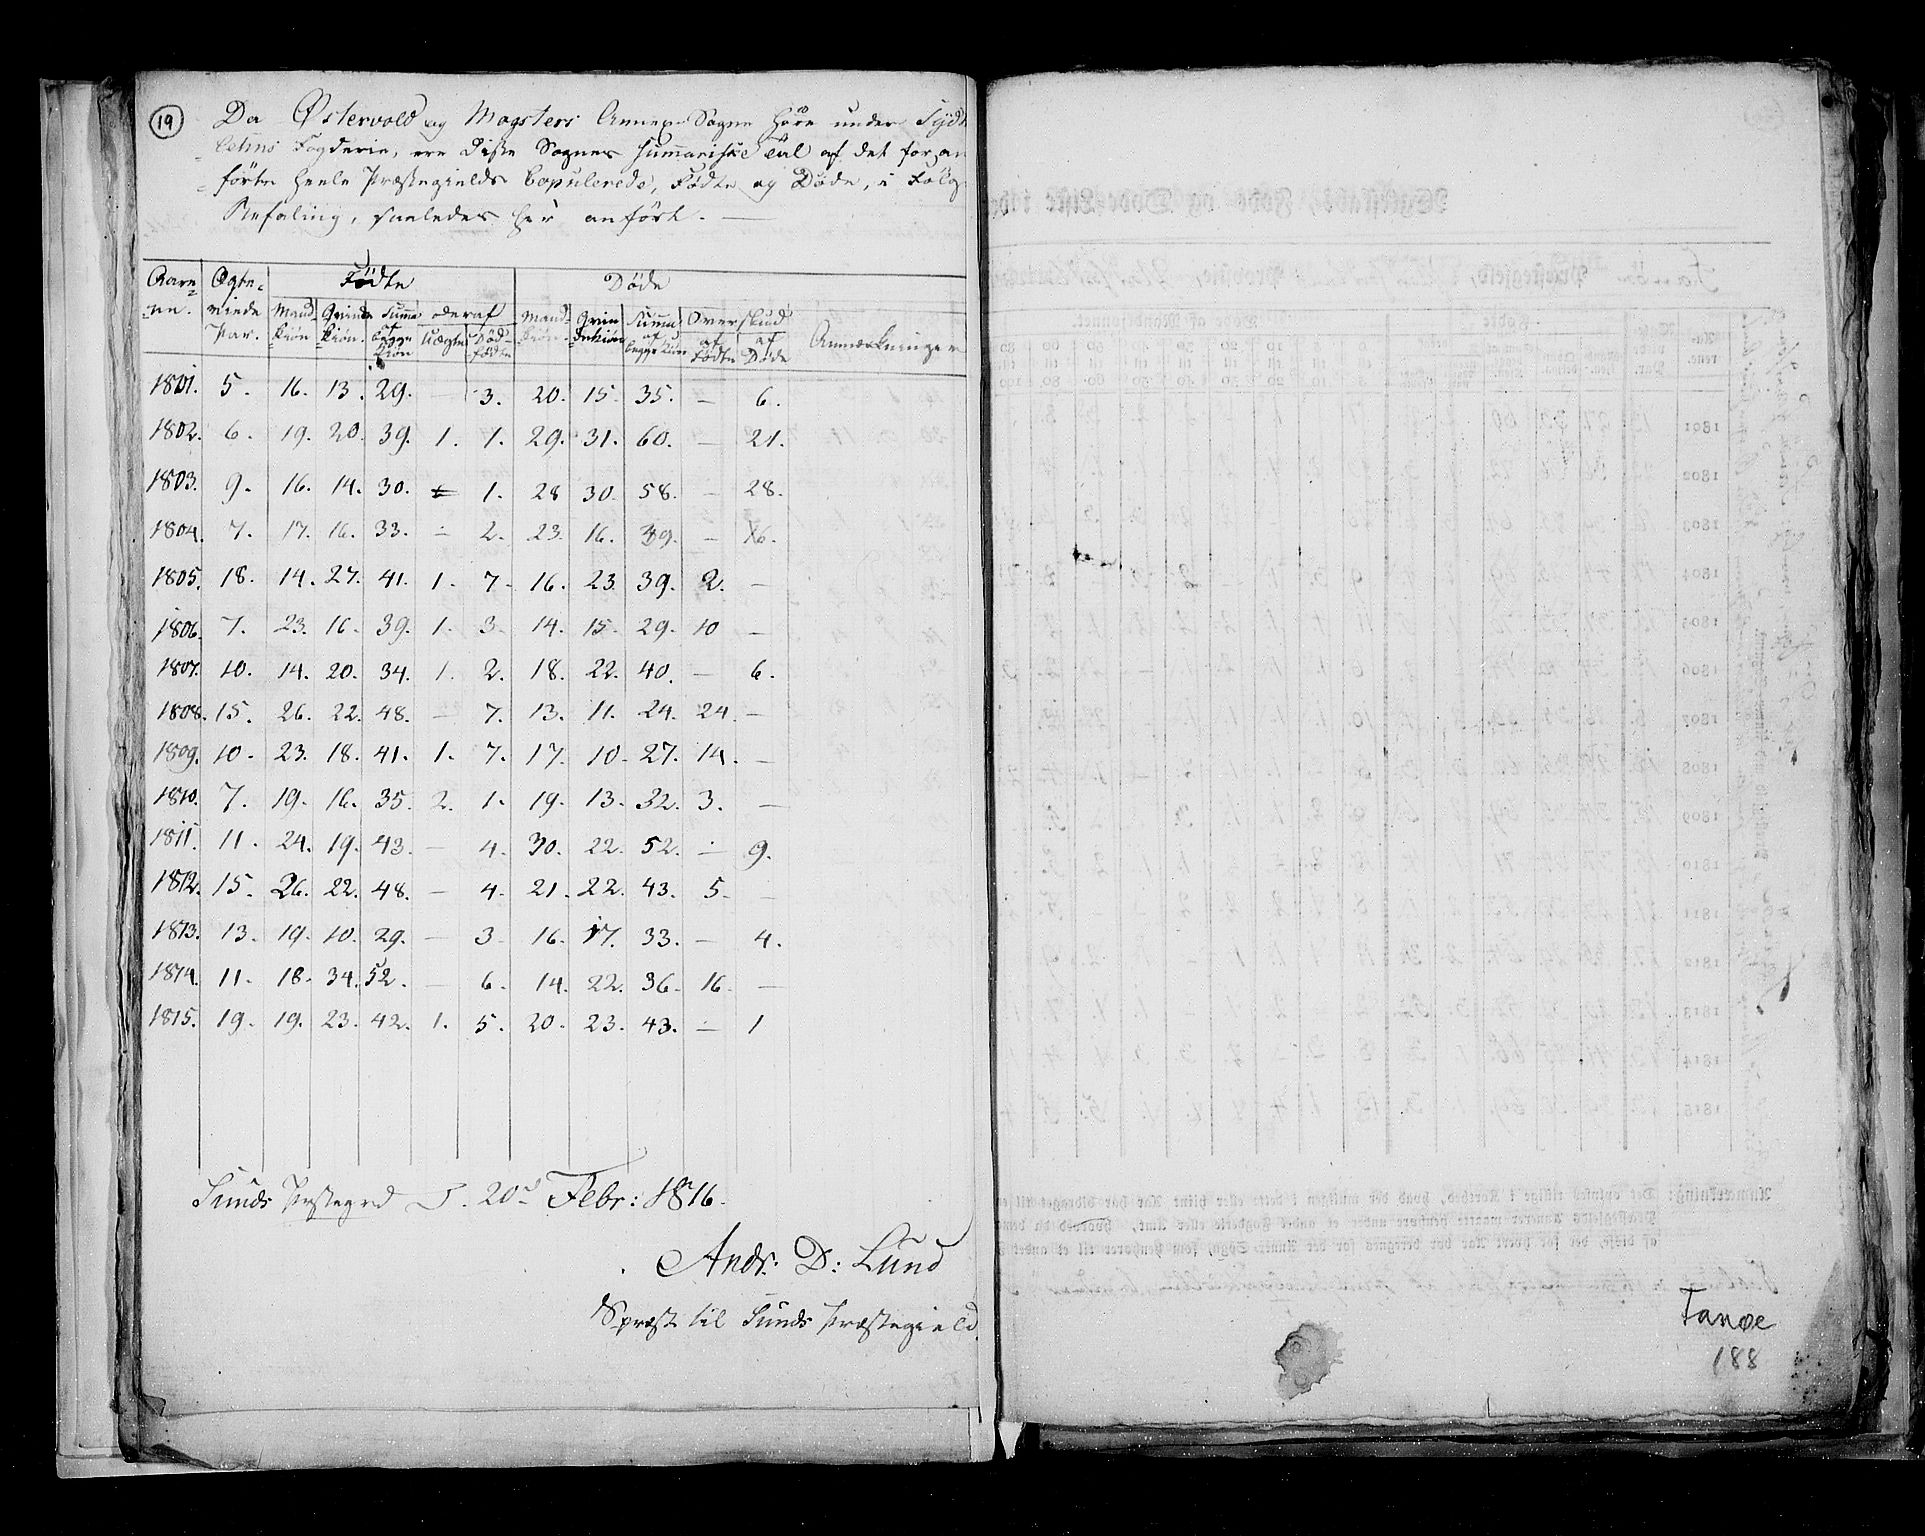 19
Da Østervold og Møgsters Annex-Sogne høre under Synd
Lehns Fogderie, ere disse Sognes summariske Tal af det foran
førte heele Præstegields Copulerede, Fødte og Døde, i Følge
Befaling, saaledes her anført. —
Aarene. Ægteviede Par. Fødte Døde
Mandkiøn Qvindekiøn. Summa af begge Kiøn deraf Mandkiøn. Qvindekiøn Summa af begge Kiøn Overskud Anmærkninger
Uægte Dødfødte af Fødte af Døde
1801. 5. 16. 13. 29. — 3. 20. 15. 35. — 6.
1802. 6. 19. 20. 39. 1. 1. 29. 31. 60. — 21.
1803. 9. 16. 14. 30. 1. 28 30. 58. — 28.
1804. 7. 17. 16. 33. — 2. 23. 16. 39. — 6.
1805. 18. 14. 27. 41. 1. 7. 16. 23 39. 2. —
1806. 7. 23. 16. 39. 1. 3. 14. 15. 29. 10 —
1807. 10. 14. 20. 34. 1. 2. 18. 22. 40. — 6.
1808. 15. 26. 22. 48. — 7. 13. 11. 24. 24. —
1809. 10. 23. 18. 41. 1. 7. 17. 10. 27. 14. —
1810. 7. 19. 16. 35. 2. 1. 19. 13. 32. 3. —
1811. 11. 24. 19. 43. — 4. 30. 22. 52. — 9.
1812. 15. 26. 22. 48. — 4. 21. 22. 43. 5. —
1813. 13. 19. 10. 29. — 3. 16. 17. 33. — 4.
1814. 11. 18. 34. 52. — 6. 14. 22. 36. 16. —
1815. 19. 19. 23. 42. 1. 5. 20. 23. 43. — 1
Sunds Præstegrd d. 20d Febr: 1816.
Andr. D: Lund
Spræst til Sunds Præstegield.
Tanøe
188